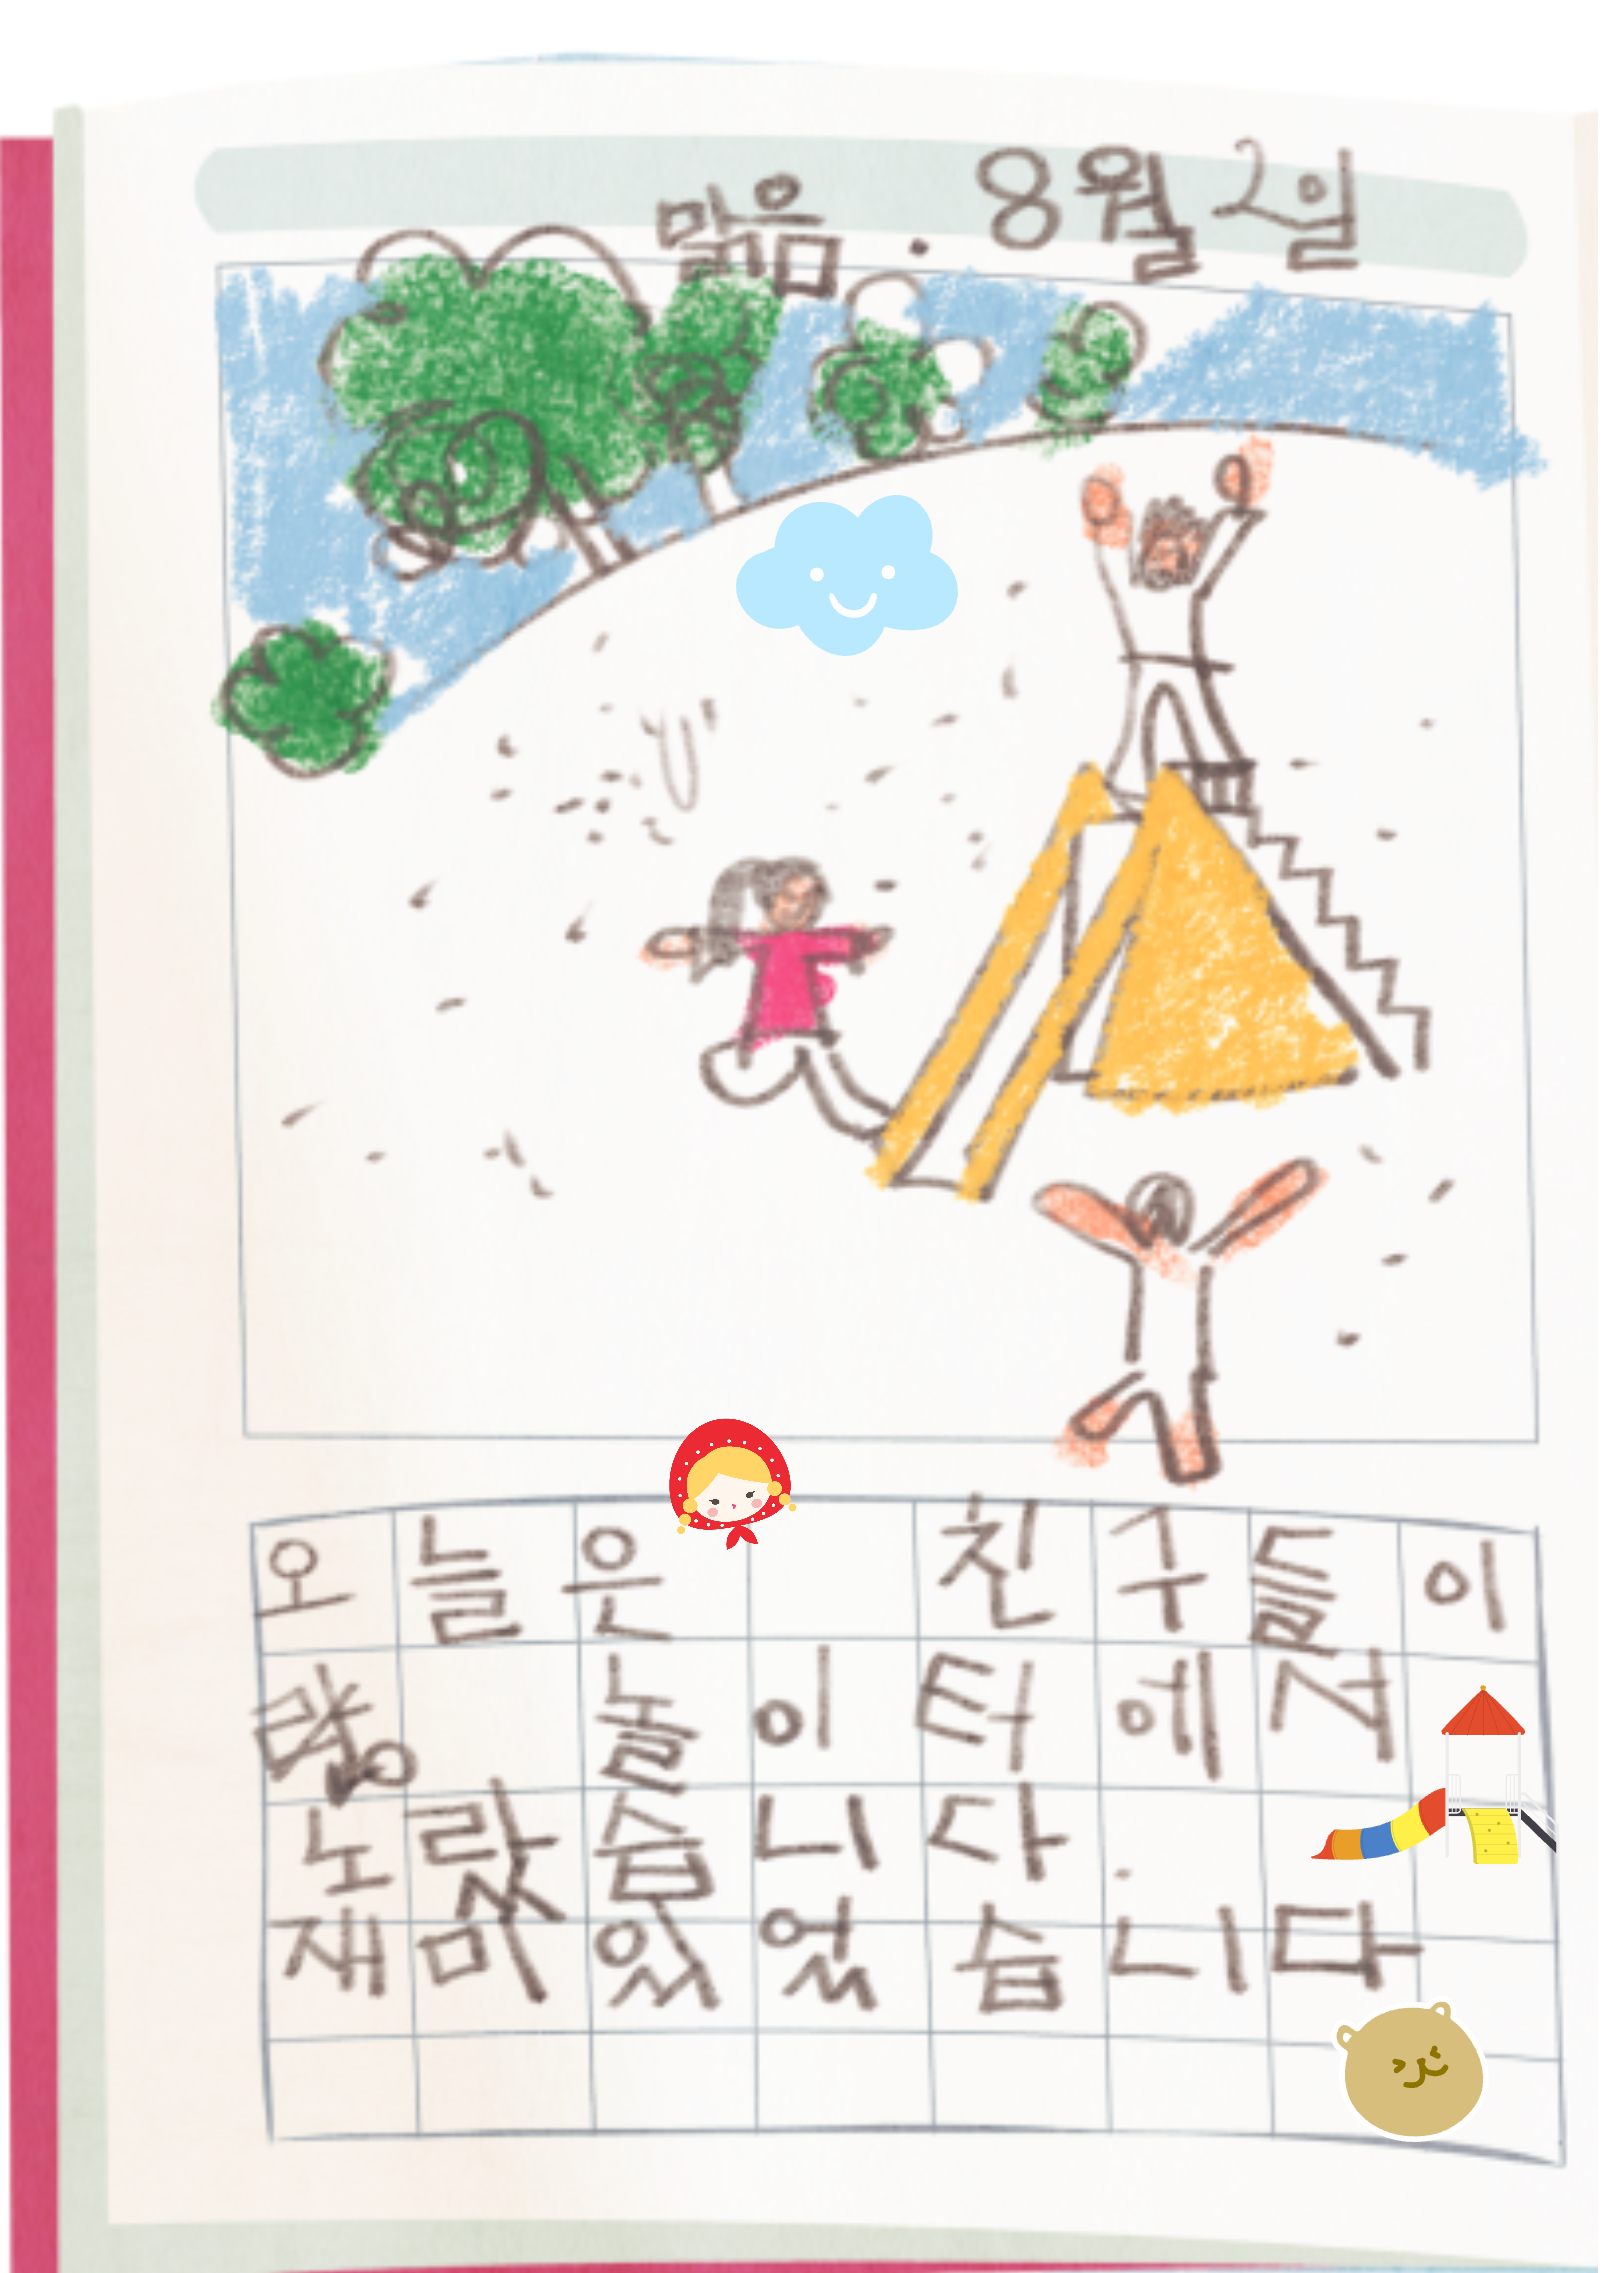 맑음. 8월 2일
오늘은 친구들이
랑 놀이터에서
노랐습니다.
재미있었습니다